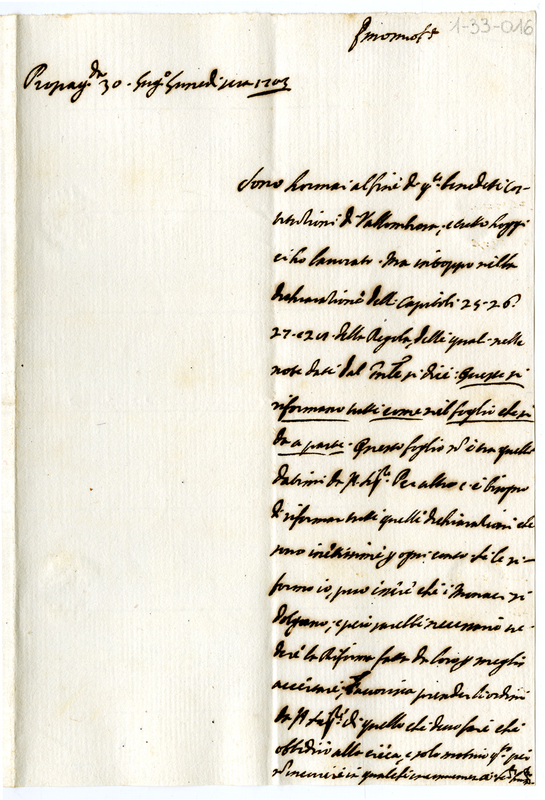 1-33-016
Propag.da 30. Lug.o Lunedi sera 1703
Sono hormai al fine di q.te benedette Con-
stitutioni di Vallombrosa, e tutto hoggi
ci ho lavorato. Ma intoppo nella
dichiaratione delli Capitoli 25. 26.
27. e 28. della Regola, delle quali nelle
note date dal si dice: Queste si
riformano tutte come nel foglio che si
da a parte. Questo foglio non è tra quelli
datimi da Per altro c'è bisogno
di riformar tutte quelle dichiarationi che
sono inettissime per ogni conto. Se le ri-
formo io, può essere che i Monaci si
dolgano, e però sarebbe necessario ve-
dere la Riforma fatta da loro per meglio
accertare. Favorisca prender li ordini
da di quello che devo fare che
obbedirò alla cieca, e solo motivo q.to per
non incorrere in qualche